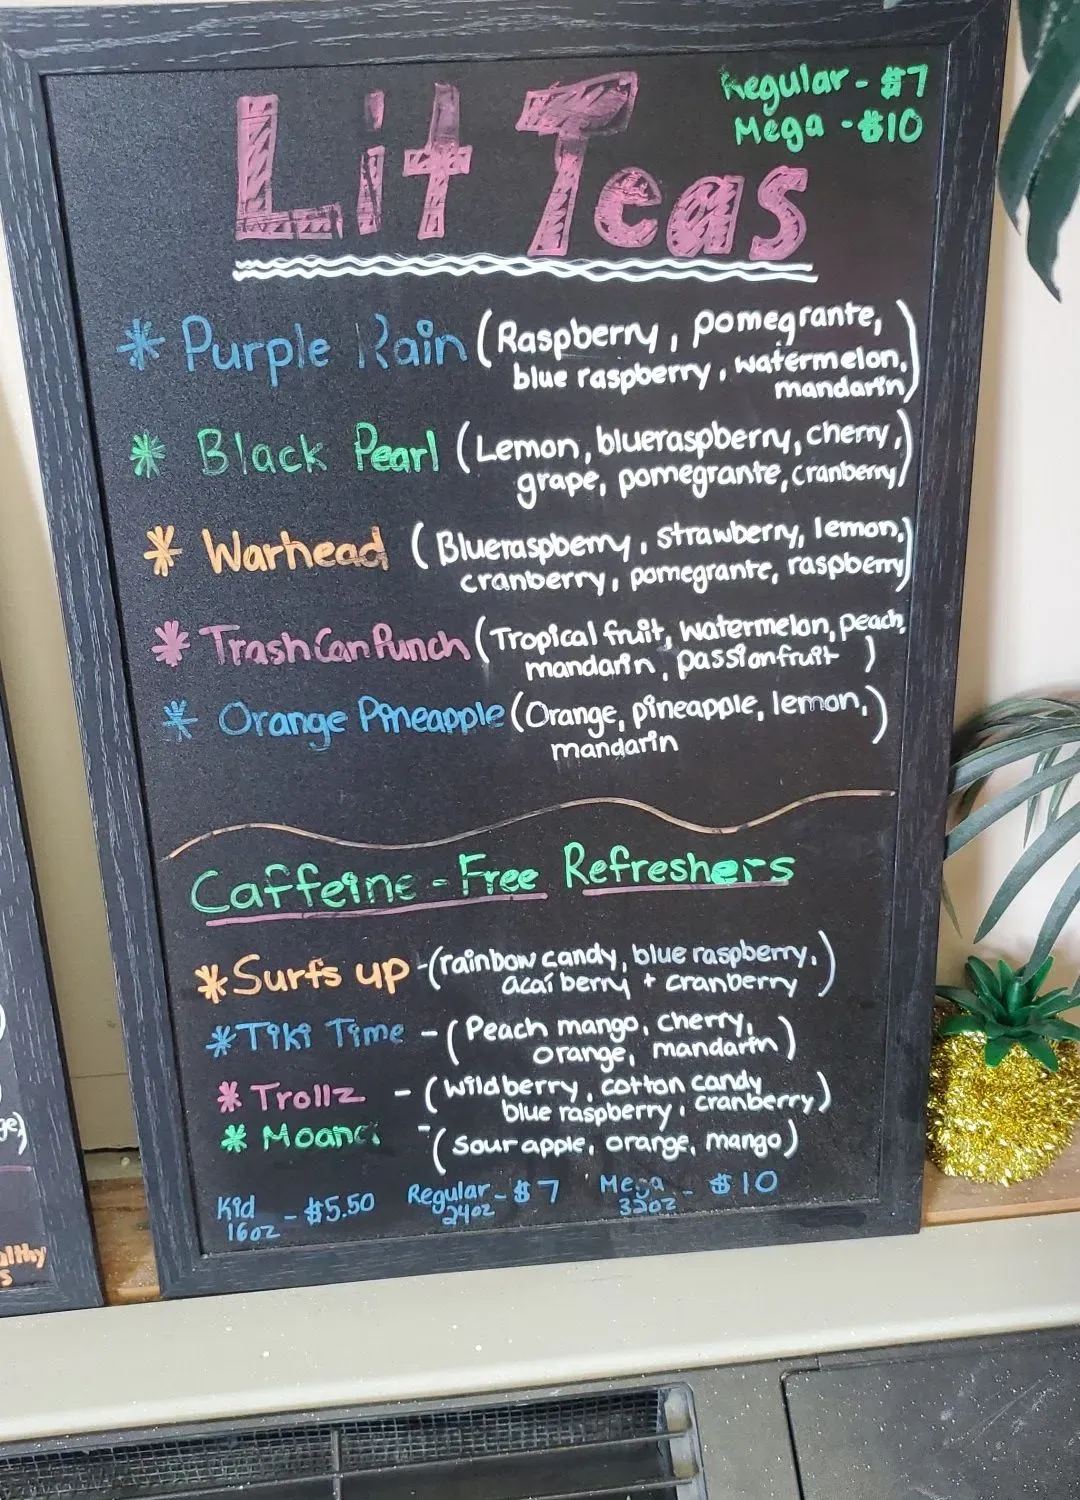 Lit Teas
Regular - $7
Mega - $10
* Purple Rain (Raspberry, pomegrante,
blue raspberry, watermelon,
mandarin)
* Black Pearl (Lemon, blueraspberry, cherry,
grape, pomegrante, cranberry)
* Warhead (Blueraspberry, strawberry, lemon,
cranberry, pomegrante, raspberry)
* Trash Can Punch (Tropical fruit, watermelon, peach,
mandarin, passionfruit)
* Orange Pineapple (Orange, pineapple, lemon,
mandarin)
Caffeine-Free Refreshers
* Surfs up - (rainbow candy, blue raspberry,
acaí berry + cranberry)
* Tiki Time - (Peach mango, cherry,
orange, mandarin)
* Trollz - (wildberry, cotton candy
blue raspberry, cranberry)
* Moana - (sour apple, orange, mango)
Kid - $5.50 Regular - $7 Mega - $10
16oz 24oz 32oz